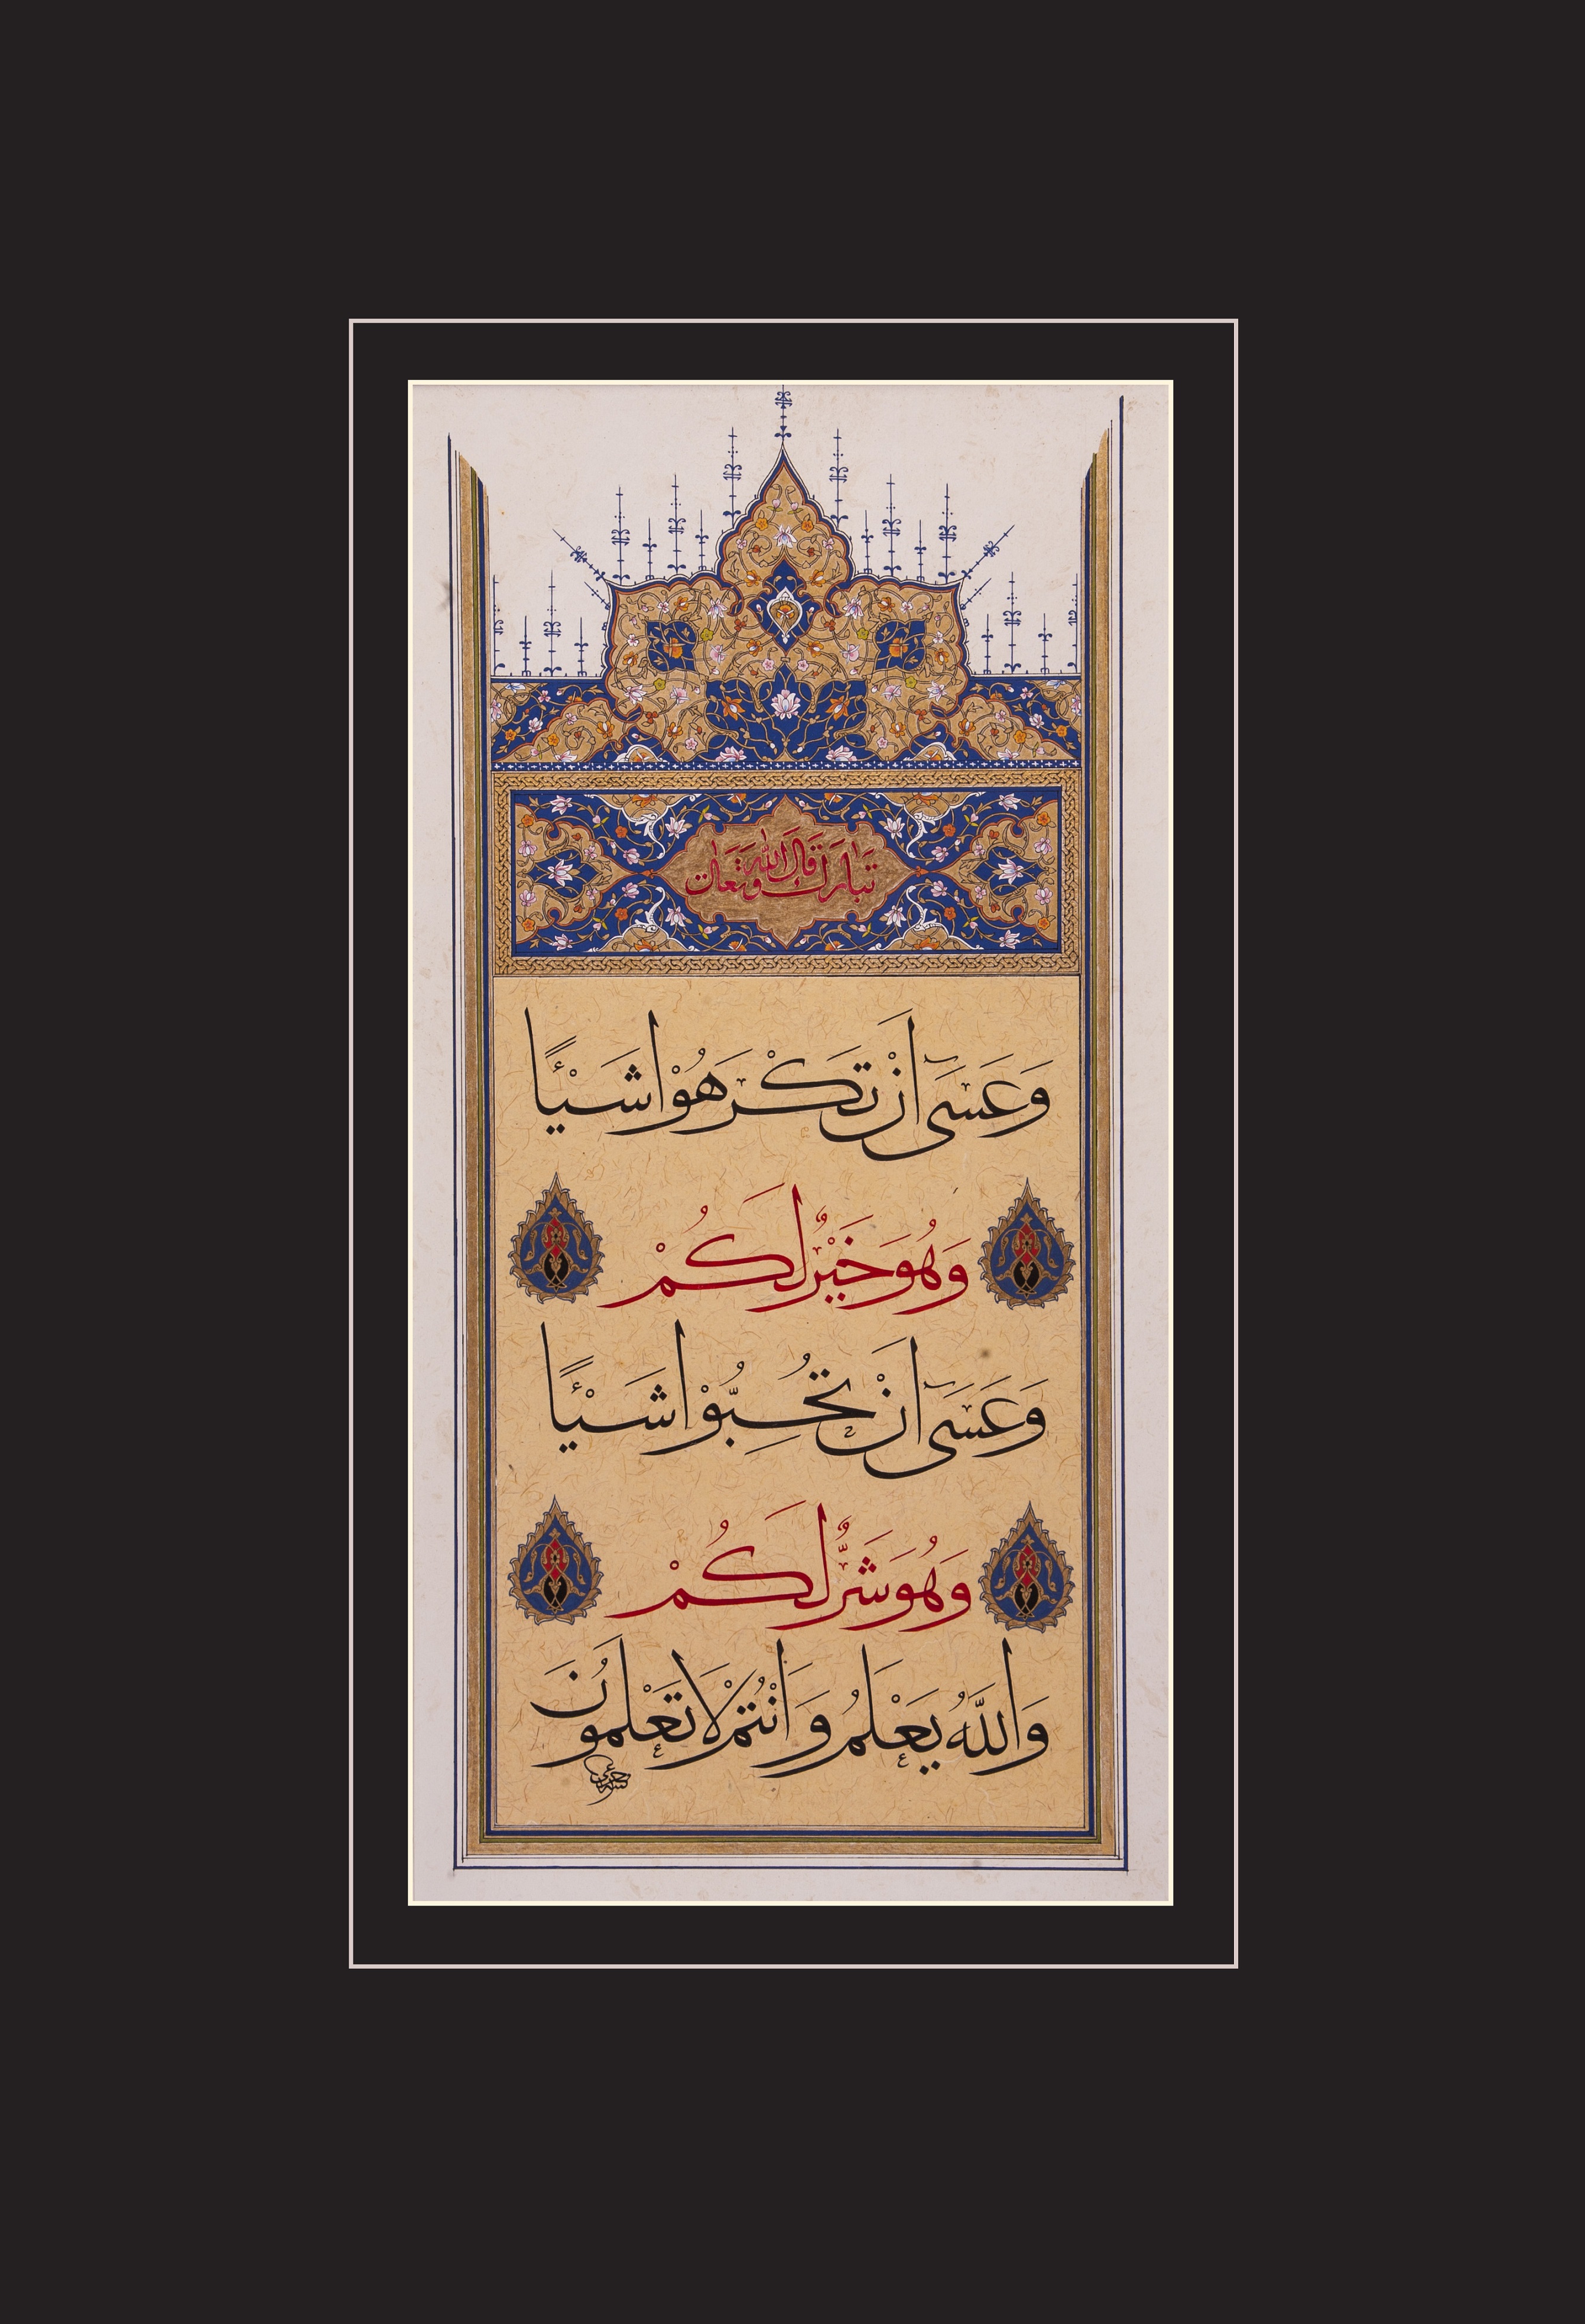 قال الله تبارك وتعالى
وَعَسَىٓ اَنْ تَكْرَهُوْا شَيْـًٔا
وَهُوَ خَيْرٌ لَكُمْ
وَعَسَىٓ اَنْ تُحِبُّوْا شَيْـًٔا
وَهُوَ شَرٌّ لَكُمْ
وَاللّٰهُ يَعْلَمُ وَاَنْتُمْ لَا تَعْلَمُونَ